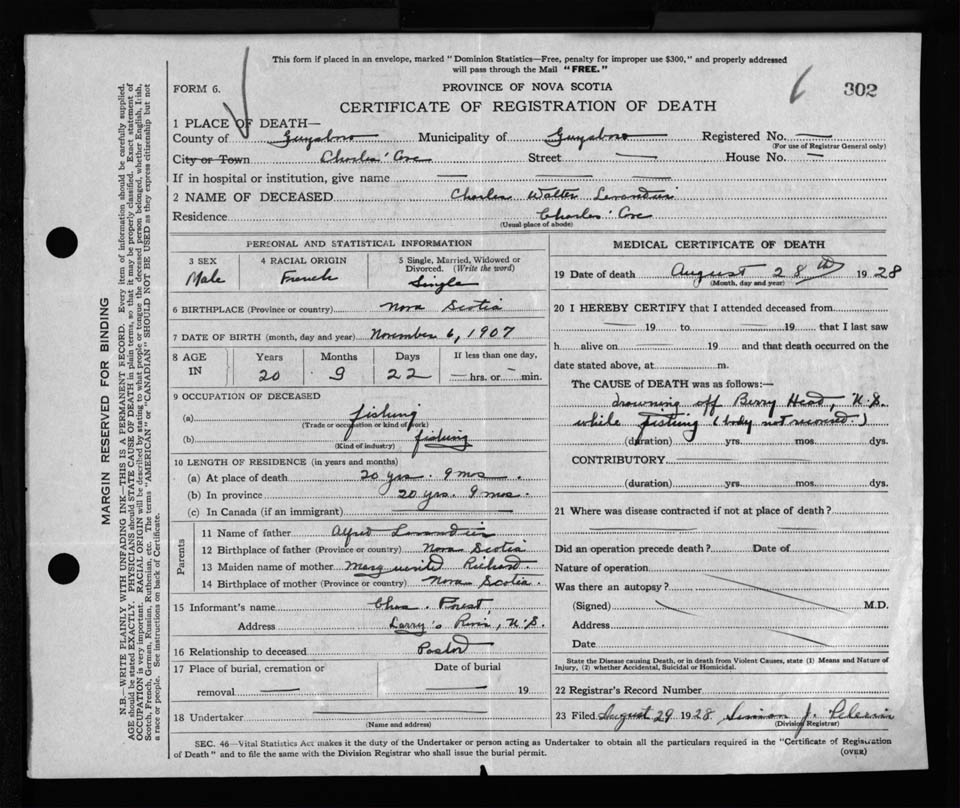 This form if placed in an envelope, marked "Dominion Statistics—Free, penalty for improper use $300," and properly addressed
will pass through the Mail "FREE."
FORM 6.
PROVINCE OF NOVA SCOTIA
302
CERTIFICATE OF REGISTRATION OF DEATH
1 PLACE OF DEATH—
County of Guysboro Municipality of Guysboro Registered No. —
(For use of Registrar General only)
City or Town Charlos' Cove Street — House No. —
If in hospital or institution, give name — — —
2 NAME OF DECEASED Charles Walter
Residence Charlos' Cove
(Usual place of abode)
PERSONAL AND STATISTICAL INFORMATION
3 SEX 4 RACIAL ORIGIN 5 Single, Married, Widowed or
Divorced. (Write the word)
Male French Single
6 BIRTHPLACE (Province or country) Nova Scotia
7 DATE OF BIRTH (month, day and year) November 6, 1907
8 AGE IN Years Months Days If less than one day,
20 9 22 — hrs. or — min.
9 OCCUPATION OF DECEASED
(a) fishing
(Trade or occupation or kind of work)
(b) fishing
(Kind of industry)
10 LENGTH OF RESIDENCE (in years and months)
(a) At place of death 20 yrs. 9 mos
(b) In province 20 yrs. 9 mos.
(c) In Canada (if an immigrant)
Parents
11 Name of father Alfred
12 Birthplace of father (Province or country) Nova Scotia
13 Maiden name of mother Marguerite Richard
14 Birthplace of mother (Province or country) Nova Scotia
15 Informant's name Chas. Forest,
Address Larry's River, N.S.
16 Relationship to deceased Pastor
17 Place of burial, cremation or Date of burial
removal — — 19
18 Undertaker —
(Name and address)
MEDICAL CERTIFICATE OF DEATH
19 Date of death August 28th 1928
(Month, day and year)
20 I HEREBY CERTIFY that I attended deceased from
— 19 to — 19 that I last saw
h alive on — 19 — and that death occurred on the
date stated above, at m.
The CAUSE of DEATH was as follows:—
drowning off Berry Head, N.S.
while fishing (body not recovered)
(duration) yrs. mos. dys.
CONTRIBUTORY
(duration) yrs. mos. dys.
21 Where was disease contracted if not at place of death?
Did an operation precede death? Date of
Nature of operation
Was there an autopsy?
(Signed) M.D.
Address
Date
State the Disease causing Death, or in death from Violent Causes, state (1) Means and Nature of
Injury, (2) whether Accidental, Suicidal or Homicidal.
22 Registrar's Record Number
23 Filed August 29 1928 Simon J. Pelerin
(Division Registrar)
SEC. 46—Vital Statistics Act makes it the duty of the Undertaker or person acting as Undertaker to obtain all the particulars required in the "Certificate of Registration
of Death" and to file the same with the Division Registrar who shall issue the burial permit.
(OVER)
MARGIN RESERVED FOR BINDING
N.B.—WRITE PLAINLY WITH UNFADING INK—THIS IS A PERMANENT RECORD. Every item of information should be carefully supplied.
AGE should be stated EXACTLY. PHYSICIANS should STATE CAUSE OF DEATH in plain terms, so that it may be properly classified. Exact statement of
OCCUPATION is very important. RACIAL ORIGIN will be described by stating to what people or tongue the deceased person belonged, whether English, Irish,
Scotch, French, German, Russian, Ruthenian, etc. The terms "AMERICAN" or "CANADIAN" SHOULD NOT BE USED as they express citizenship but not
a race or people. See instructions on back of Certificate.